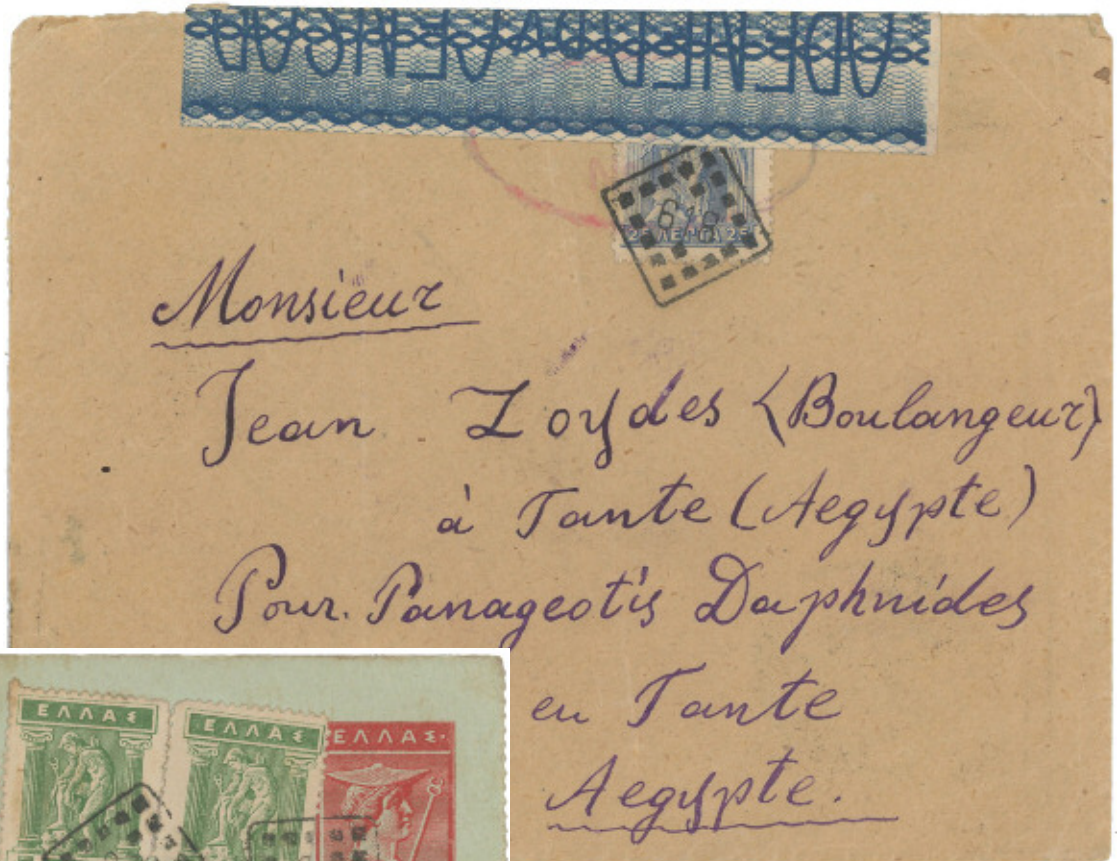 25 ΛΕΠΤΑ 25
Monsieur
Jean Zoydes (Boulangeur)
à Tante (Aegypte)
Pour. Panageotis Daphnides
en Tante
Aegypte.
ΕΛΛΑΣ ΕΛΛΑΣ ΕΛΛΑΣ